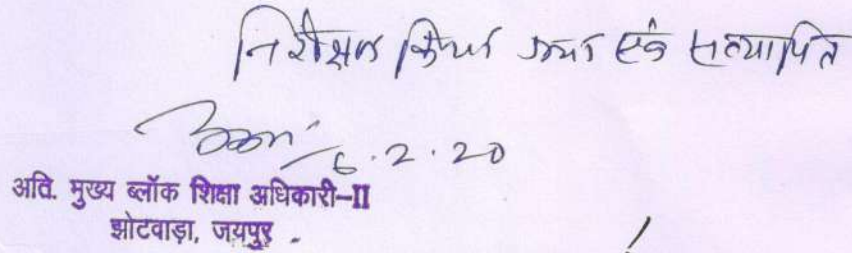 निरीक्षण किया गया एवं सत्यापित
6.2.20
अति. मुख्य ब्लॉक शिक्षा अधिकारी-II
झोटवाड़ा, जयपुर